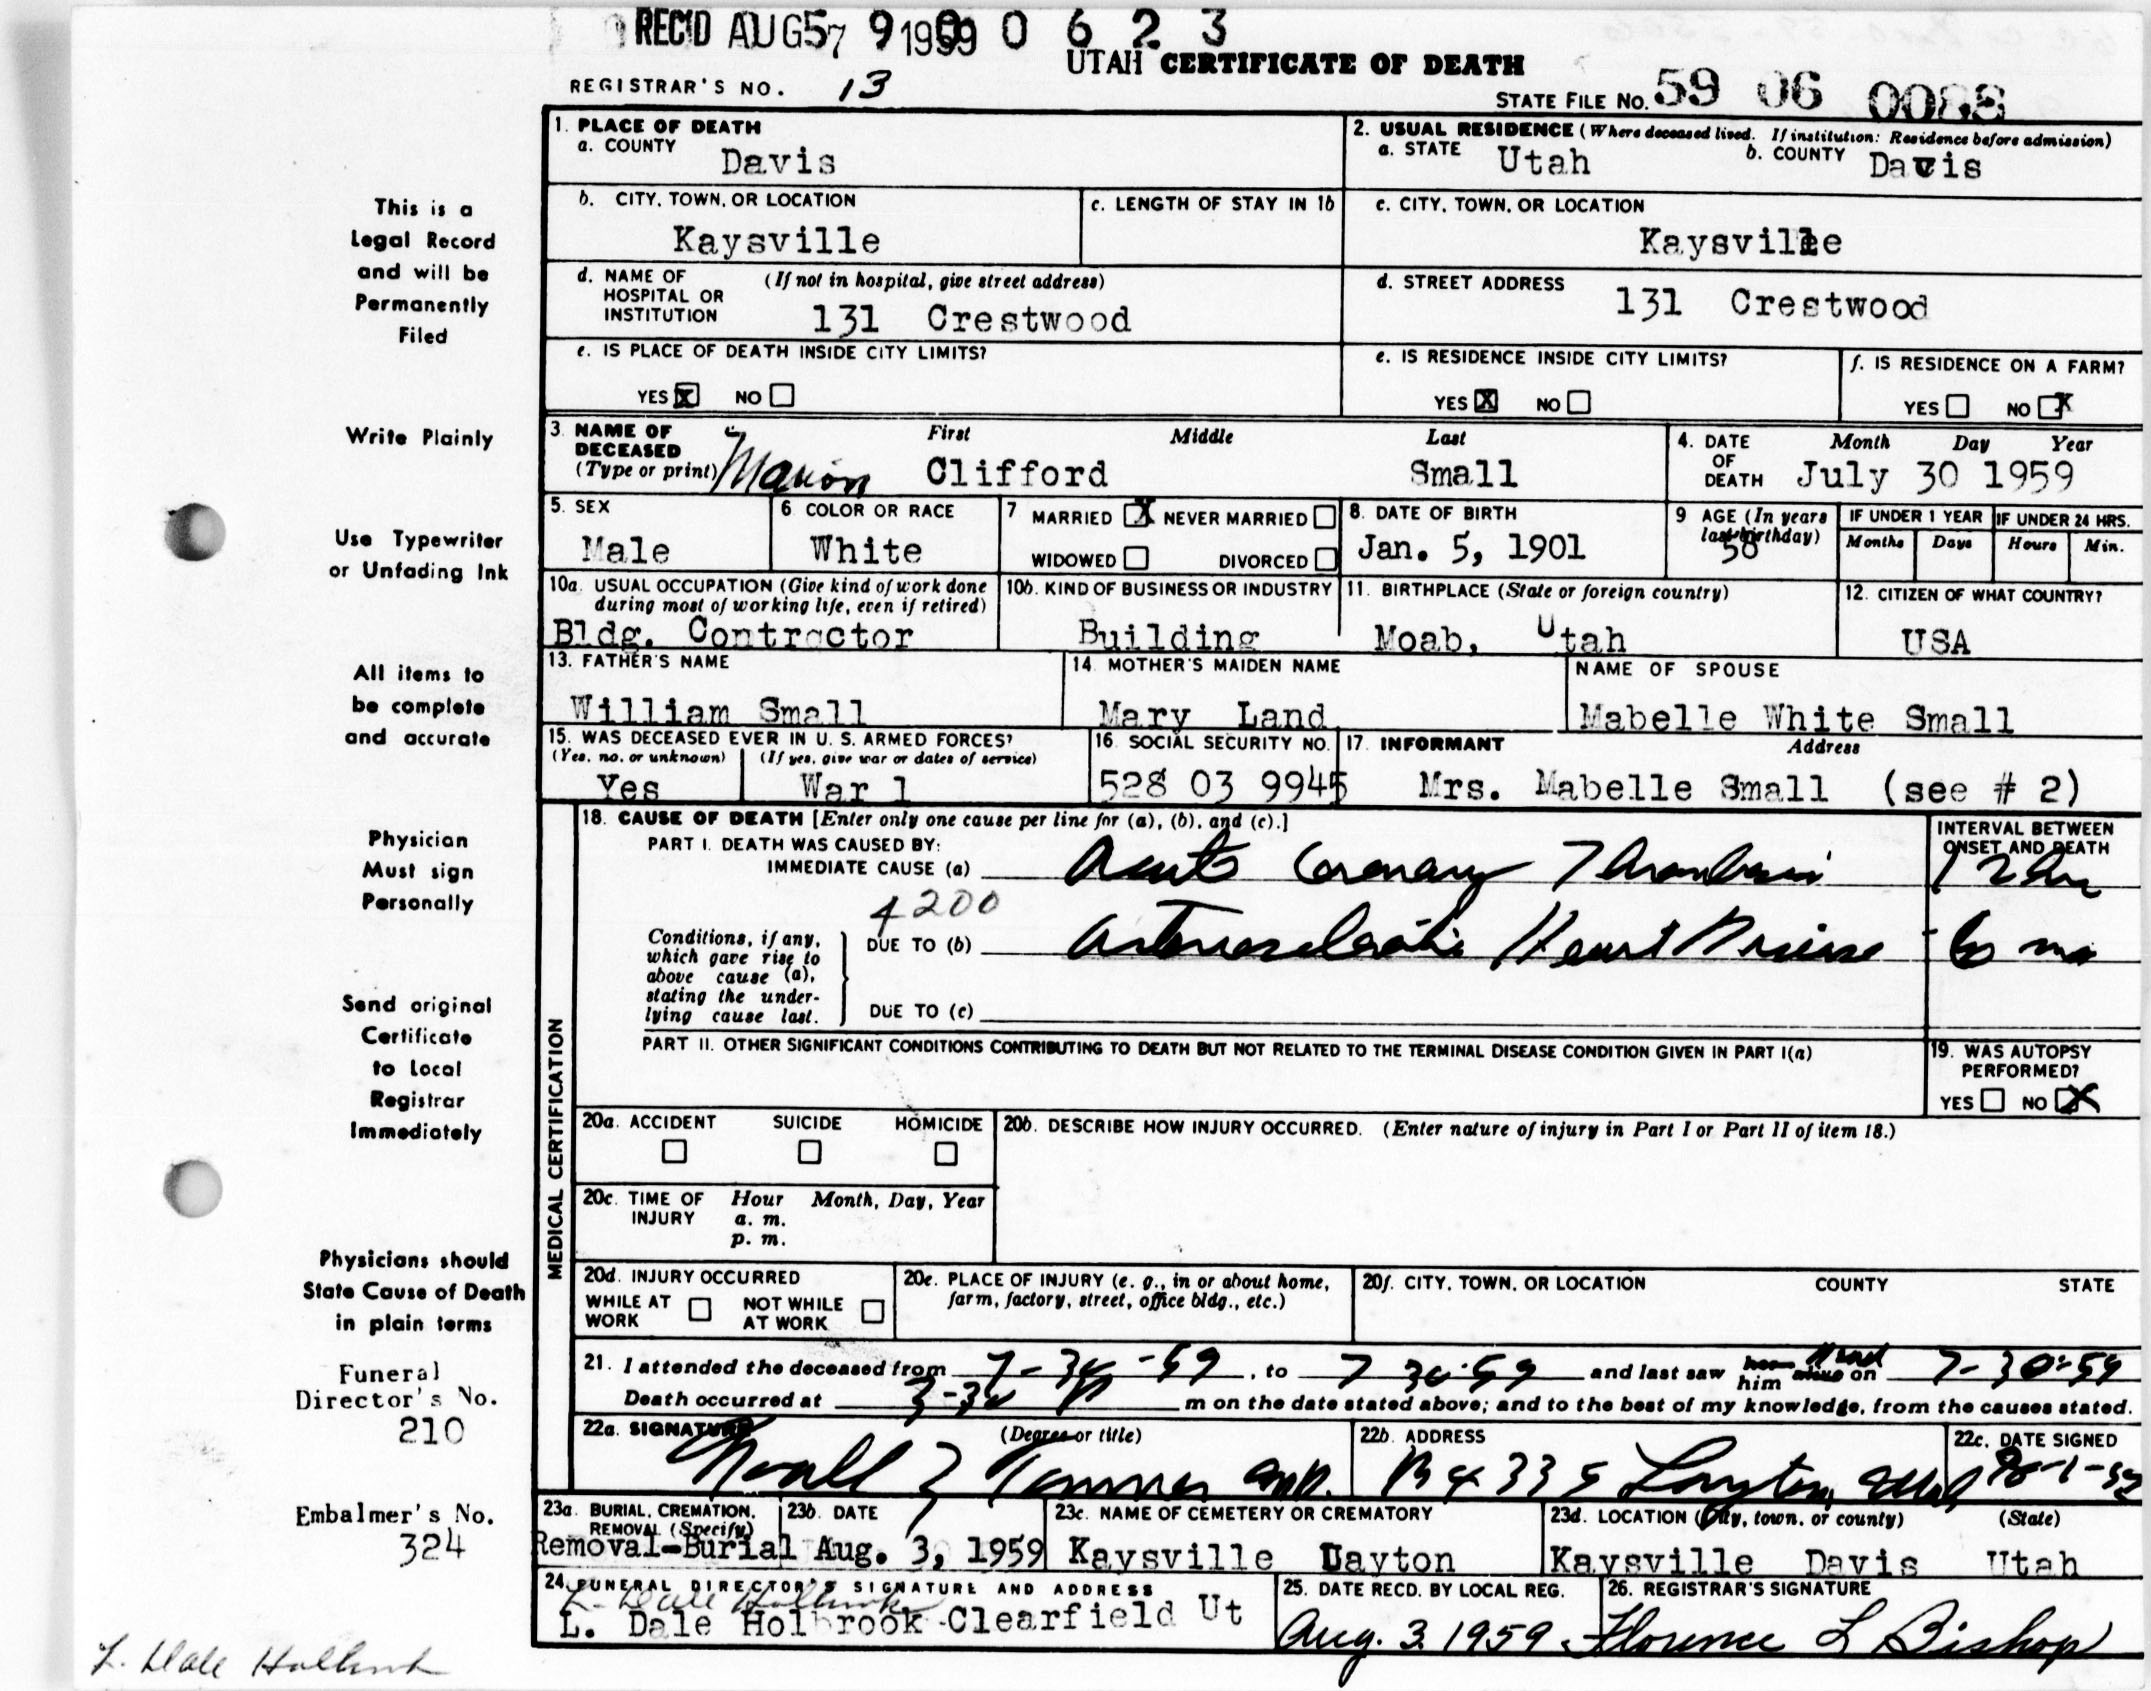 REC'D AUG 57 9 1959 0 0 6 2 3
UTAH CERTIFICATE OF DEATH
REGISTRAR'S NO. 13
STATE FILE NO. 59 06 0088
This is a
Legal Record
and will be
Permanently
Filed
Write Plainly
Use Typewriter
or Unfading Ink
All items to
be complete
and accurate
Physician
Must sign
Personally
Send original
Certificate
to Local
Registrar
Immediately
Physicians should
State Cause of Death
in plain terms
Funeral
Director's No.
210
Embalmer's No.
324
L. Dale Holbrook
1. PLACE OF DEATH
a. COUNTY Davis
2. USUAL RESIDENCE (Where deceased lived. If institution: Residence before admission)
a. STATE Utah b. COUNTY Davis
b. CITY, TOWN, OR LOCATION
Kaysville
c. LENGTH OF STAY IN 1b
c. CITY, TOWN, OR LOCATION
Kaysville
d. NAME OF (If not in hospital, give street address)
HOSPITAL OR
INSTITUTION 131 Crestwood
d. STREET ADDRESS 131 Crestwood
e. IS PLACE OF DEATH INSIDE CITY LIMITS?
YES X NO
e. IS RESIDENCE INSIDE CITY LIMITS?
YES X NO
f. IS RESIDENCE ON A FARM?
YES NO X
3. NAME OF First Middle Last
DECEASED
(Type or print) Marion Clifford Small
4. DATE Month Day Year
OF
DEATH July 30 1959
5. SEX
Male
6. COLOR OR RACE
White
7 MARRIED X NEVER MARRIED
WIDOWED DIVORCED
8. DATE OF BIRTH
Jan. 5, 1901
9 AGE (In years
last birthday)
58
IF UNDER 1 YEAR
Months Days
IF UNDER 24 HRS.
Hours Min.
10a. USUAL OCCUPATION (Give kind of work done
during most of working life, even if retired)
Bldg. Contractor
10b. KIND OF BUSINESS OR INDUSTRY
Building
11. BIRTHPLACE (State or foreign country)
Moab, Utah
12. CITIZEN OF WHAT COUNTRY?
USA
13. FATHER'S NAME
William Small
14. MOTHER'S MAIDEN NAME
Mary Land
NAME OF SPOUSE
Mabelle White Small
15. WAS DECEASED EVER IN U. S. ARMED FORCES?
(Yes, no, or unknown) (If yes, give war or dates of service)
Yes War 1
16. SOCIAL SECURITY NO.
528 03 9945
17. INFORMANT Address
Mrs. Mabelle Small (see # 2)
MEDICAL CERTIFICATION
18. CAUSE OF DEATH [Enter only one cause per line for (a), (b), and (c).]
PART I. DEATH WAS CAUSED BY:
IMMEDIATE CAUSE (a) Acute Coronary Thrombosis
INTERVAL BETWEEN
ONSET AND DEATH
12 hr
4200
Conditions, if any,
which gave rise to
above cause (a),
stating the under-
lying cause last.
DUE TO (b) Arteriosclerotic Heart Disease 6 mo
DUE TO (c)
PART II. OTHER SIGNIFICANT CONDITIONS CONTRIBUTING TO DEATH BUT NOT RELATED TO THE TERMINAL DISEASE CONDITION GIVEN IN PART I(a)
19. WAS AUTOPSY
PERFORMED?
YES NO X
20a. ACCIDENT SUICIDE HOMICIDE
20b. DESCRIBE HOW INJURY OCCURRED. (Enter nature of injury in Part I or Part II of item 18.)
20c. TIME OF Hour Month, Day, Year
INJURY a. m.
p. m.
20d. INJURY OCCURRED
WHILE AT NOT WHILE
WORK AT WORK
20e. PLACE OF INJURY (e. g., in or about home,
farm, factory, street, office bldg., etc.)
20f. CITY, TOWN, OR LOCATION COUNTY STATE
21. I attended the deceased from 7-30-59, to 7 30-59 and last saw her him alive dead on 7-30-59
Death occurred at 3-30 P m on the date stated above; and to the best of my knowledge, from the causes stated.
22a. SIGNATURE (Degree or title)
Noall Z Tanner M.D.
22b. ADDRESS
Layton, Utah
22c. DATE SIGNED
8-1-59
23a. BURIAL, CREMATION,
REMOVAL (Specify)
Removal-Burial
23b. DATE
Aug. 3, 1959
23c. NAME OF CEMETERY OR CREMATORY
Kaysville Layton
23d. LOCATION (City, town, or county) (State)
Kaysville Davis Utah
24. FUNERAL DIRECTOR'S SIGNATURE AND ADDRESS
L. Dale Holbrook
L. Dale Holbrook Clearfield Ut
25. DATE RECD. BY LOCAL REG.
Aug. 3. 1959
26. REGISTRAR'S SIGNATURE
Florence L Bishop